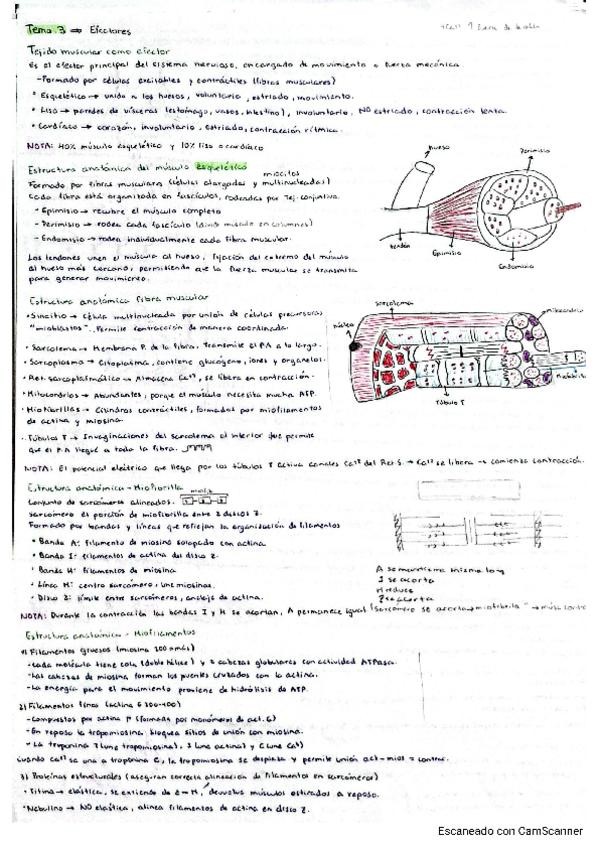 Tema 3 ⇒ Efectores
Tejido muscular como efector
Es el efector principal del sistema nervioso, encargado de movimiento o fuerza mecánica.
-Formado por células excitables y contráctiles (fibras musculares)
• Esquelético → unido a los huesos, voluntario, estriado, movimiento.
• Liso → paredes de vísceras (estómago, vasos, intestino), involuntario, NO estriado, contracción lenta.
• Cardíaco → corazón, involuntario, estriado, contracción rítmica.
NOTA: 40% músculo esquelético y 10% liso o cardíaco
Estructura anatómica del músculo esquelético
miocitos
Formado por fibras musculares (células alargadas y multinucleadas)
Cada fibra está organizada en fascículos, rodeadas por Tej. conjuntivo.
- Epimisio → recubre el músculo completo
- Perimisio → rodea cada fascículo (divide músculo en columnas)
- Endomisio → rodea individualmente cada fibra muscular.
Los tendones unen el músculo al hueso, fijación del extremo del músculo
al hueso más cercano, permitiendo que la fuerza muscular se transmita
para generar movimiento.
hueso
Perimisio
tendón
Epimisio
Endomisio
Estructura anatómica fibra muscular
• Sincitio → Célula multinucleada por unión de células precursoras
"mioblastos". Permite contracción de manera coordinada.
• Sarcolema → Membrana P. de la fibra. Transmite el P.A a lo largo.
• Sarcoplasma → Citoplasma, contiene glucógeno, iones y organelos.
• Ret. sarcoplasmático → Almacena Ca²⁺, se libera en contracción.
• Mitocondrias → Abundantes, porque el músculo necesita mucha ATP.
• Miofibrillas → Cilindros contráctiles, formadas por miofilamentos
de actina y miosina.
• Túbulos T → Invaginaciones del sarcolema al interior que permite
que el P.A llegue a toda la fibra.
sarcolema
mitocondria
núcleo
Túbulo T
NOTA: El potencial eléctrico que llega por los túbulos T activa canales Ca²⁺ del Ret S. → Ca²⁺ se libera → comienza contracción.
Estructura anatómica - Miofibrilla
Conjunto de sarcómeros alineados.
Sarcómero es porción de miofibrilla entre 2 discos Z.
Formado por bandas y líneas que reflejan la organización de filamentos
• Banda A: filamento de miosina solapado con actina.
• Banda I: filamentos de actina del disco Z.
• Banda H: filamentos de miosina
• Línea M: centro sarcómero, une miosinas.
• Disco Z: límite entre sarcómeros, anclaje de actina.
A se mantiene misma long
I se acorta
H reduce
Z se acerca
NOTA: Durante la contracción las bandas I y H se acortan, A permanece igual
Estructura anatómica - Miofilamentos
1) Filamentos gruesos (miosina 200 más)
-Cada molécula tiene cola (doble hélice) y 2 cabezas globulares con actividad ATPasa.
-Las cabezas de miosina forman los puentes cruzados con la actina.
-La energía para el movimiento proviene de hidrólisis de ATP.
2) Filamentos finos (actina G 300-400)
-Compuestos por actina F (formada por monómeros de act. G)
- En reposo la tropomiosina bloquea sitios de unión con miosina.
- La troponina T (une tropomiosina), I (une actina) y C (une Ca²⁺)
Cuando Ca²⁺ se une a troponina C, la tropomiosina se desplaza y permite unión act-mios = contrac.
3) Proteínas estructurales (aseguran correcta alineación de filamentos en sarcómeros)
• Titina → elástica, se extiende de Z-M, devuelve músculos estirados a reposo.
• Nebulina → NO elástica, alinea filamentos de actina en disco Z.
Escaneado con CamScanner